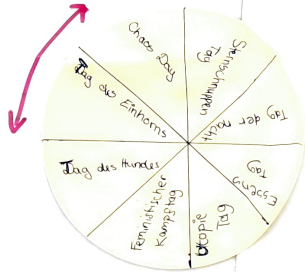 Chaos Day
Sternschnuppen
Tag
Tag der nacht
Essens
Tag
Utopie
Tag
Feministischer
Kampftag
Tag des Hundes
Tag des Einhorns